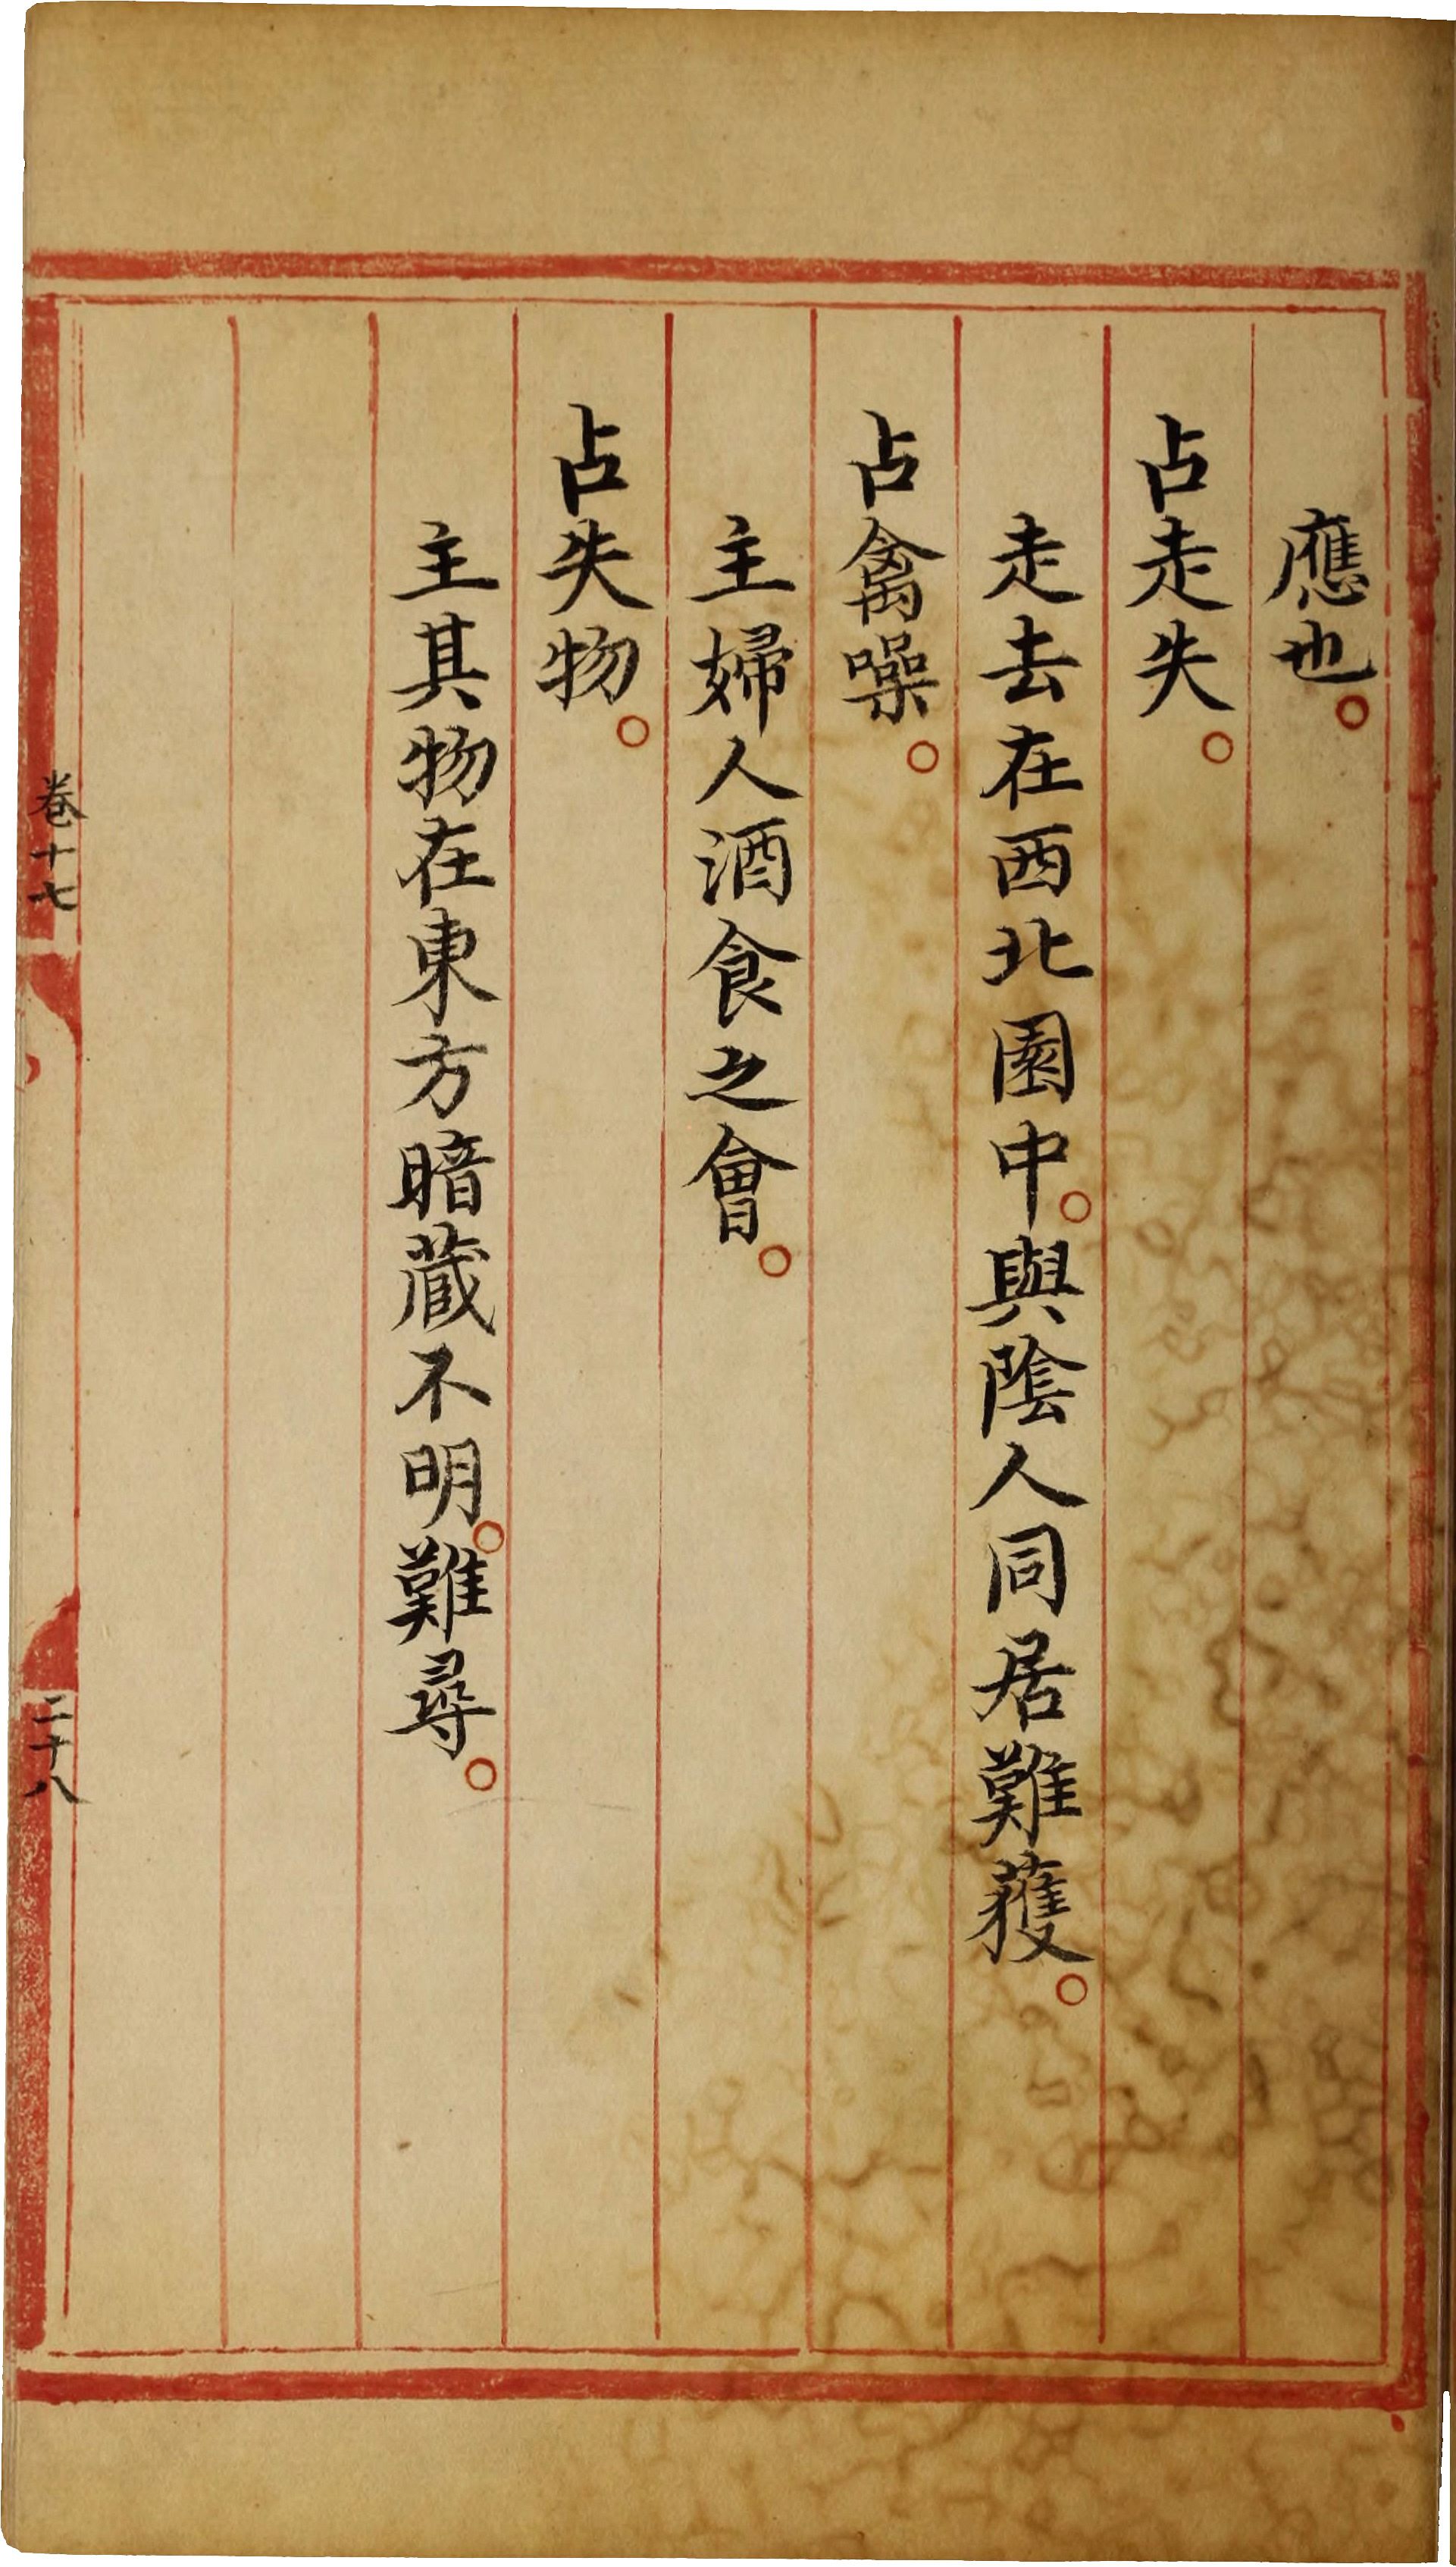 應也。
占走失。
走去在西北園中。與陰人同居難獲。
占禽噪。
主婦人酒食之會。
占失物。
主其物在東方暗藏不明。難尋。
卷十七
二十八